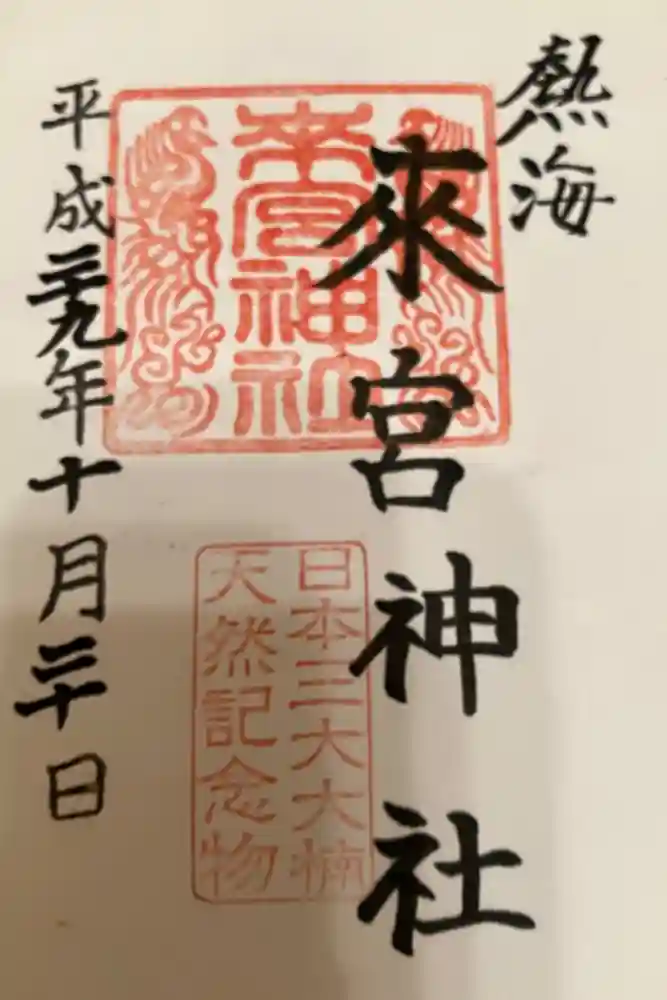 熱海
來宮神社
來宮神社
日本三大大楠
天然記念物
平成二十九年十月三十日